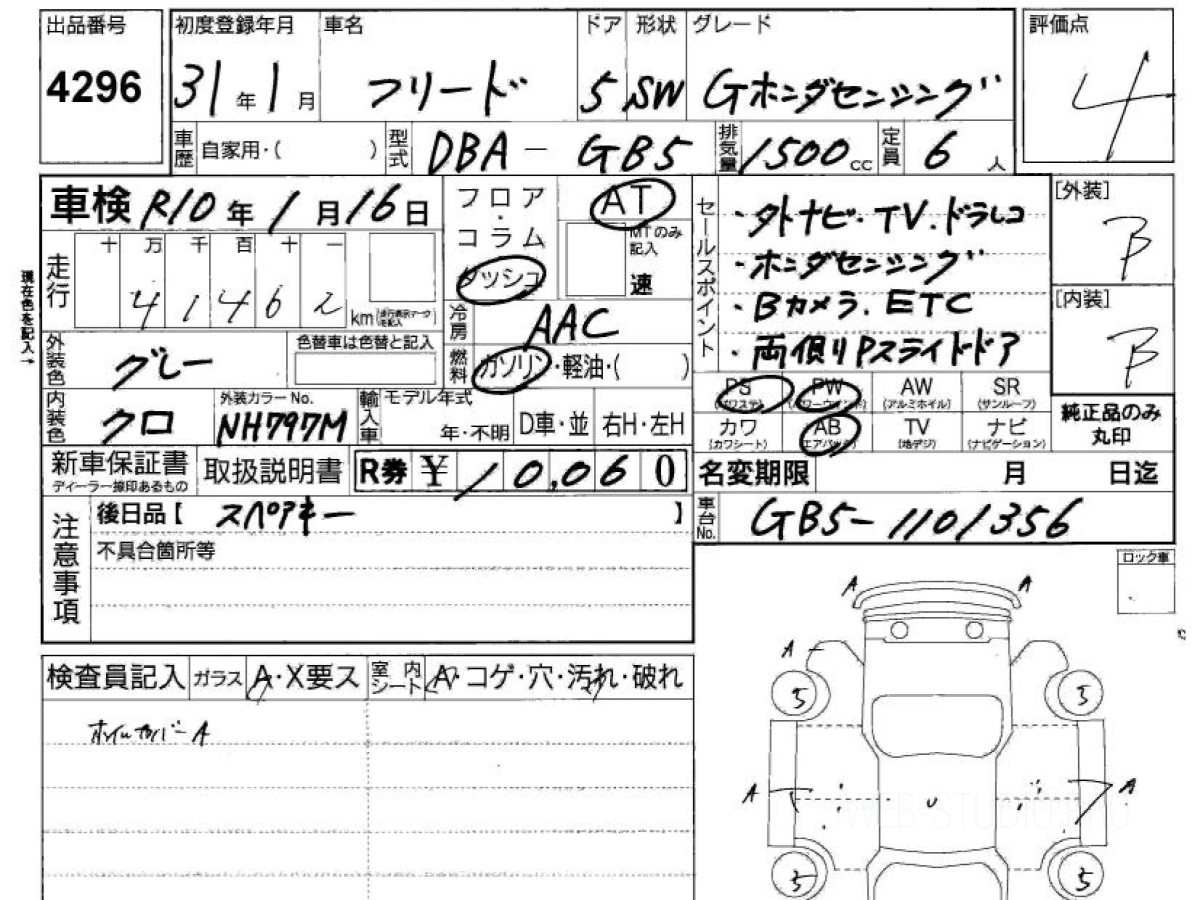 出品番号
4296
初度登録年月
31年1月
車名
フリード
ドア
5
形状
SW
グレード
Gホンダセンシング
評価点
4
車歴
自家用・( )
型式
DBA-GB5
排気量
1500cc
定員
6人
車検 R10年1月16日
フロア・コラム
ダッシュ
AT
MTのみ記入
速
セールスポイント
・外ナビ・TV.ドラレコ
・ホンダセンシング
・Bカメラ.ETC
・両側Pスライドドア
[外装]
B
[内装]
B
純正品のみ丸印
現在色を記入→
走行
十万千百十一
41462
km(走行表示マークを記入)
冷房
AAC
外装色
グレー
色替車は色替と記入
燃料
ガソリン・軽油・( )
PS(パワステ)
PW(パワーウインド)
AW(アルミホイル)
SR(サンルーフ)
カワ(カワシート)
AB(エアバック)
TV(地デジ)
ナビ(ナビゲーション)
内装色
クロ
外装カラーNo.
NH797M
輸入車
モデル年式
年・不明
D車・並
右H・左H
新車保証書
ディーラー捺印あるもの
取扱説明書
R券 ¥10,060
名変期限 月 日迄
注意事項
後日品【 スペアキー 】
不具合箇所等
車台No.
GB5-1101356
ロック車
検査員記入
ガラス
A・X要ス
室内シート
A・コゲ・穴・汚れ・破れ
ホイルカバーA
A A
A
5 5
A U A
5 5
WEB-STUDIO.PRO